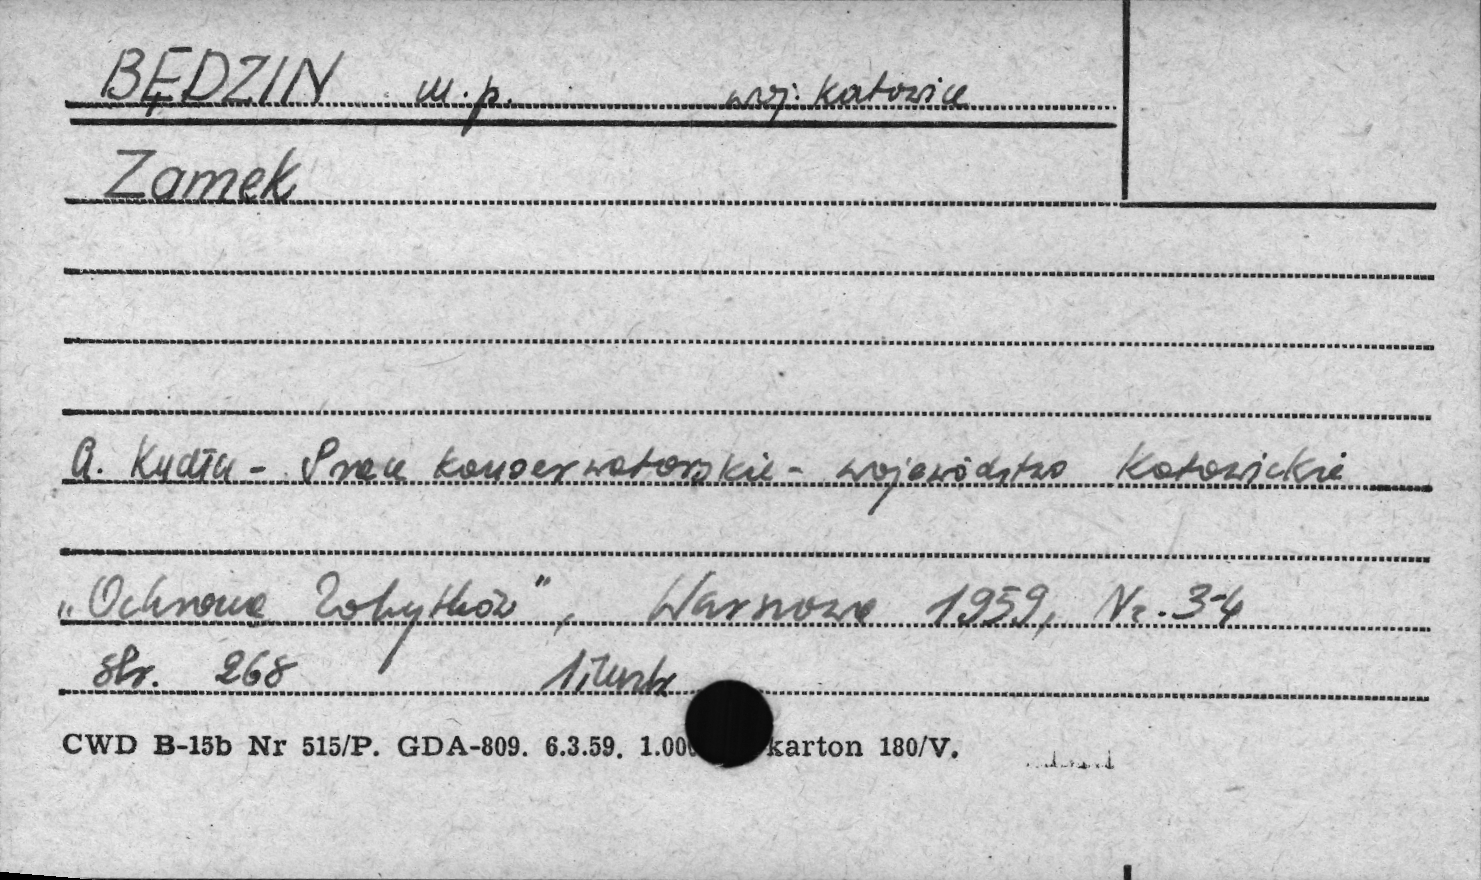 BĘDZIN m.p. woj. Katowice
Zamek
A. Kudła - Prace konserwatorskie - województwo Katowickie
„Ochrona Zabytków", Warszawa 1959, Nr. 3-4
str. 268 1 ilustr
CWD B-15b Nr 515/P. GDA-809. 6.3.59. 1.000 karton 180/V.